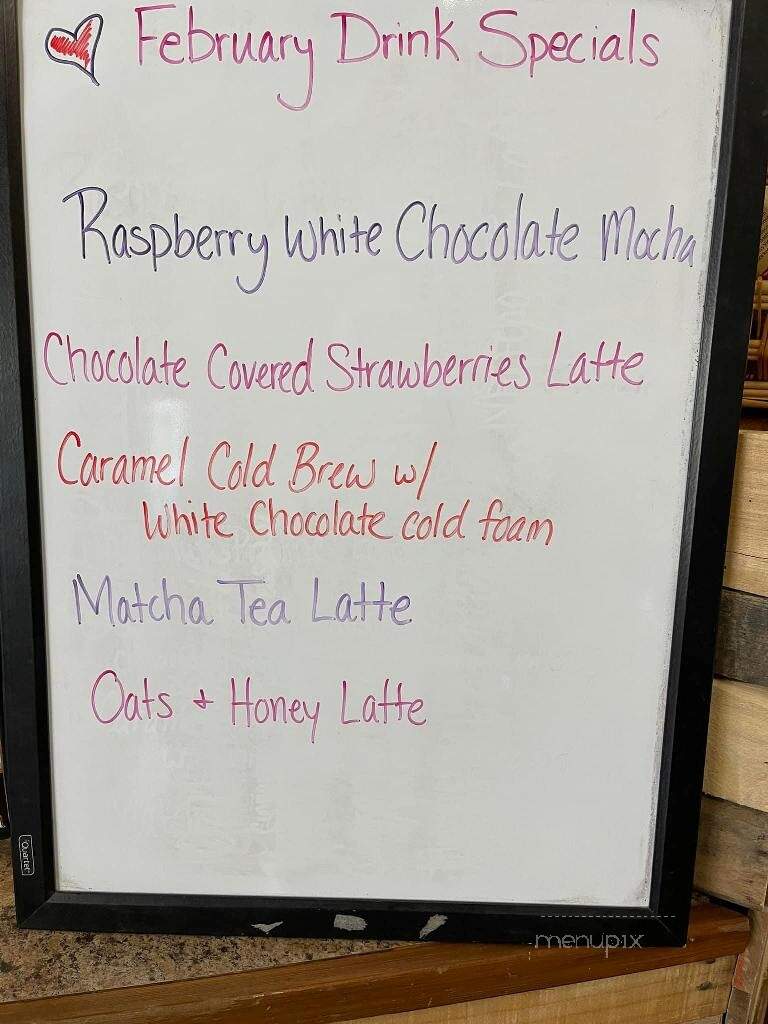 February Drink Specials
Raspberry White Chocolate Mocha
Chocolate Covered Strawberries Latte
Caramel Cold Brew w/
White Chocolate cold foam
Matcha Tea Latte
Oats + Honey Latte
Quartet
menupix